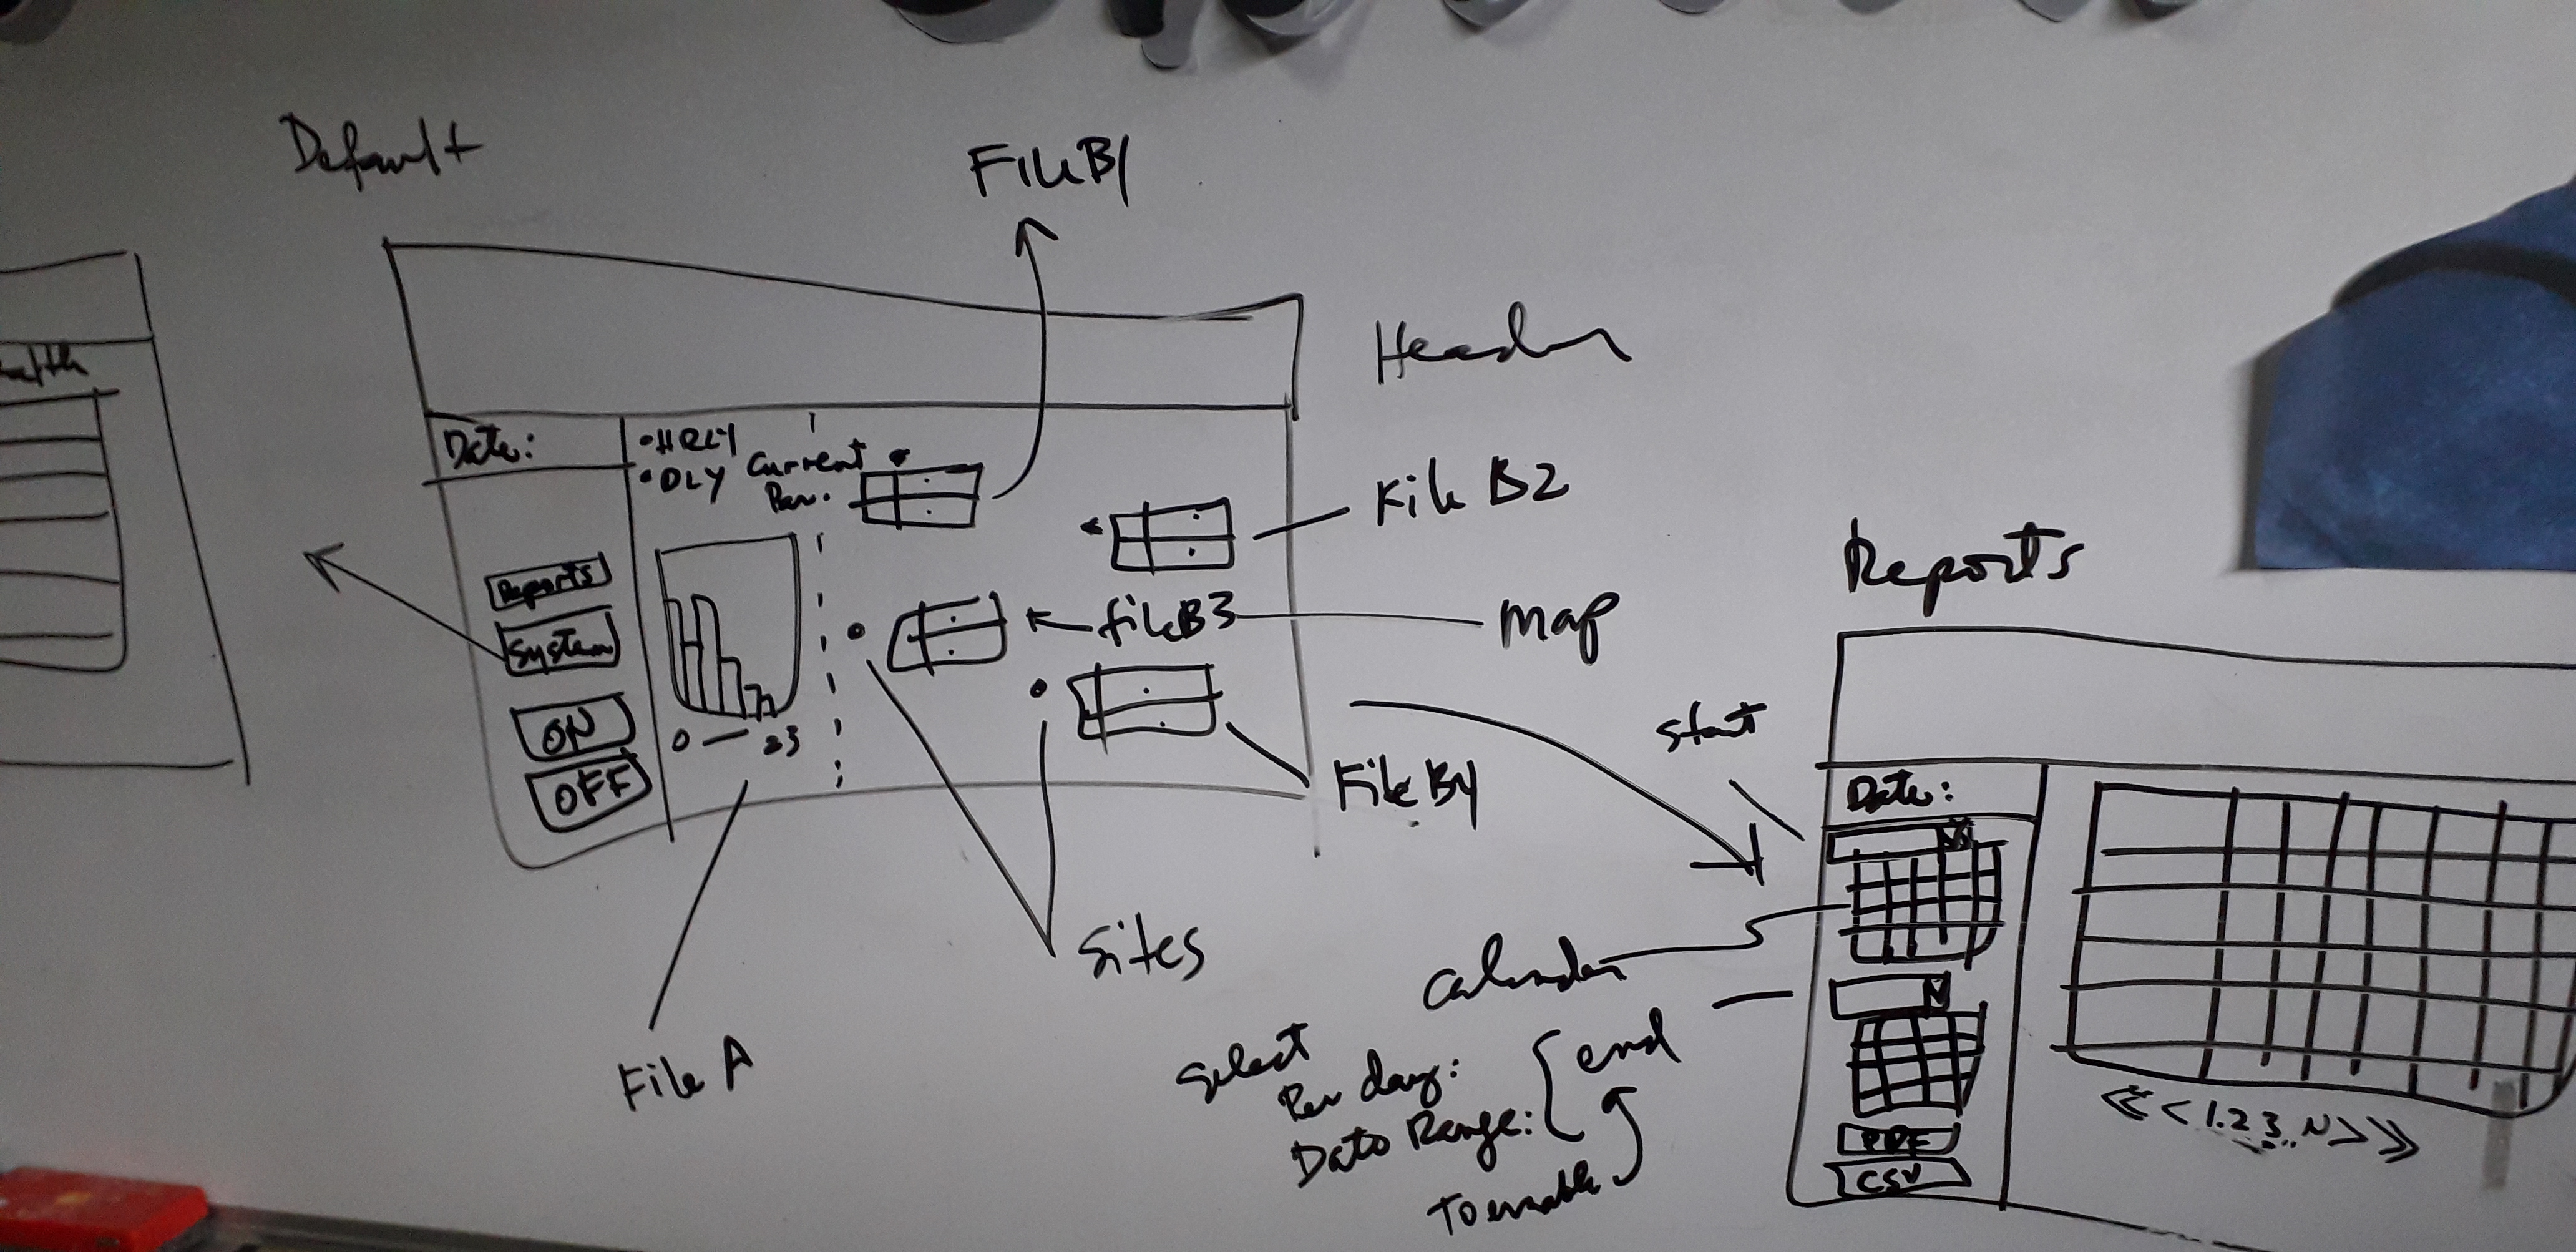 Default
File B1
Header
Date:
• HRLY
• DLY
Current
Par.
File B2
Reports
System
ON
OFF
file B3
map
0 — 23
File B4
Sites
File A
Reports
start
Date:
Calendar
Select
Per day:
Date Range:
end
To enable
PDF
CSV
<< < 1.2.3..N > >>